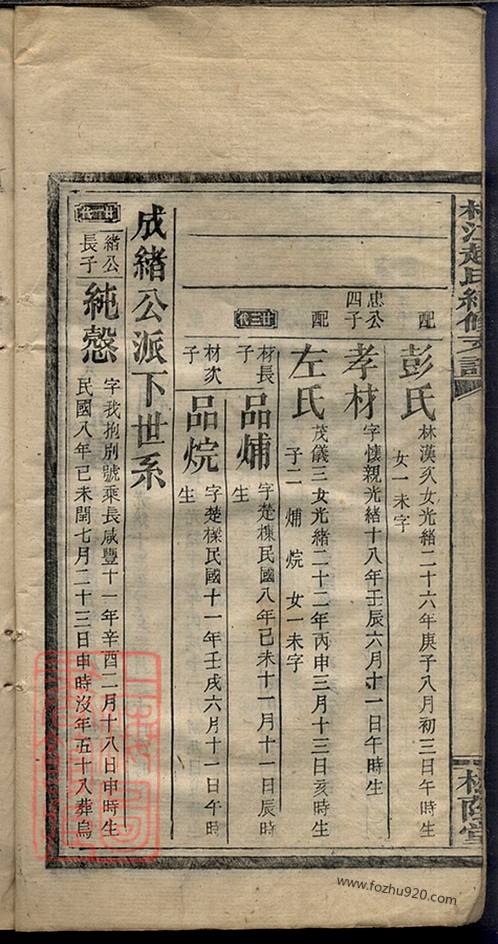 趙氏續修支譜
蔭堂
配 彭氏 林漢次女光緒二十六年庚子八月初三日午時生
女一未字
忠公四子 孝材 字懷親光緒十八年壬辰六月十一日午時生
配 左氏 茂儀三女光緒二十二年丙申三月十三日亥時生
子二 煪 烷 女一未字
廿三代
材長子 品煪 字楚棟民國八年己未十一月十一日辰時生
材次子 品烷 字楚樑民國十一年壬戌六月十一日午時生
成緒公派下世系
緒公長子 純愨 字我捌別號乘長咸豐十一年辛酉二月十八日申時生
民國八年己未閏七月二十三日申時沒年五十八葬烏
www.fozhu920.com